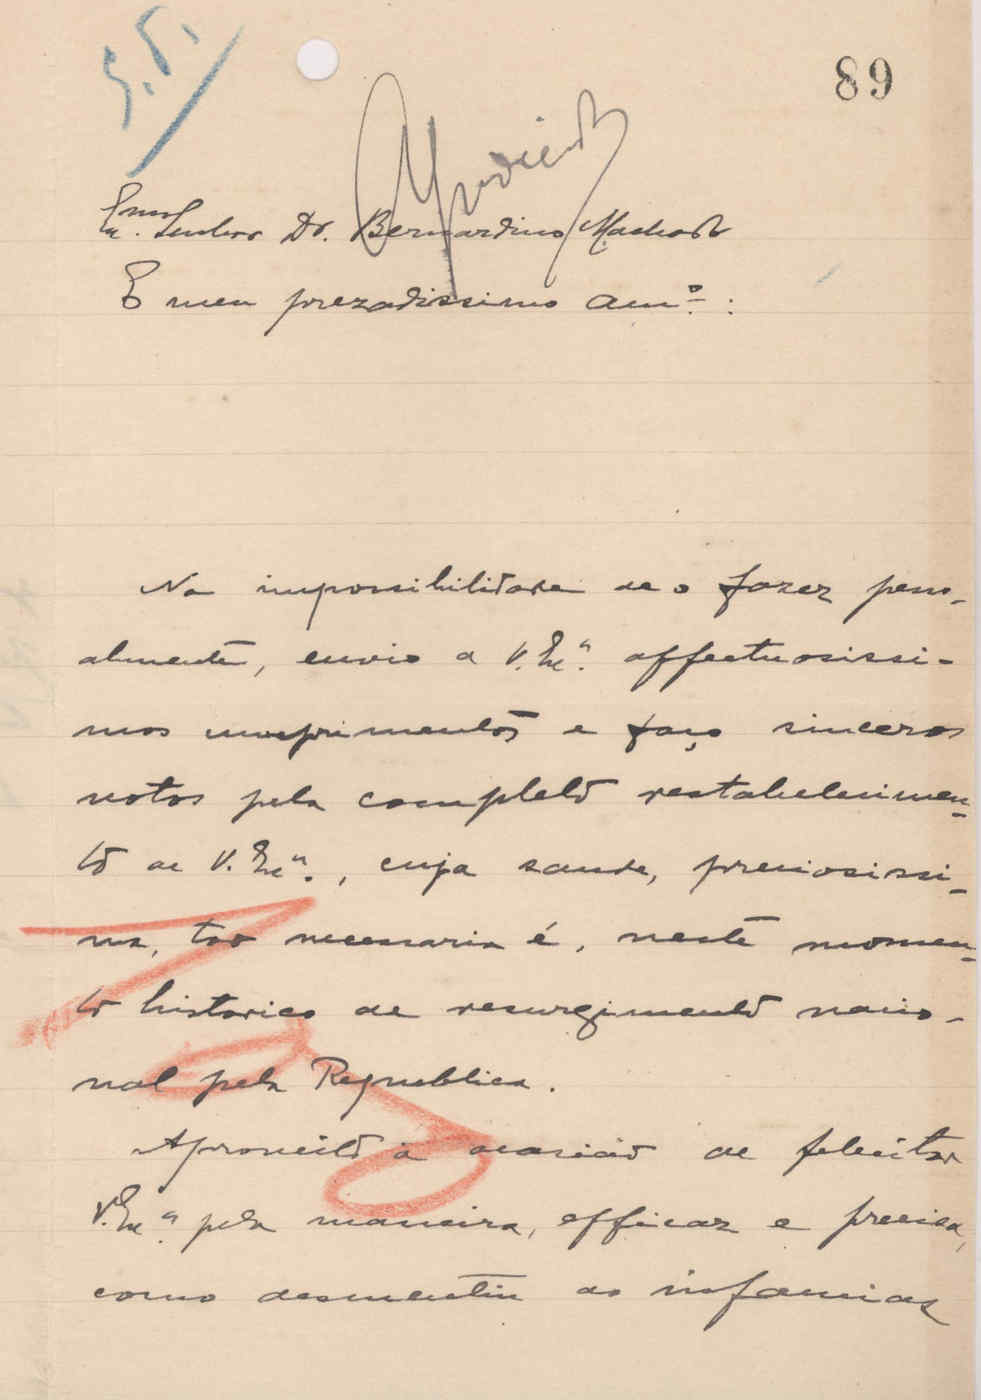 89
Exmo. Senhor Dr. Bernardino Machado
E meu prezadissimo Amº.:
Na impossibilidade de o fazer pesso-
almente, envio a V. Exª. affectuosissi-
mos cumprimentos e faço sinceros
votos pelo completo restabelecimen-
to de V. Exª., cuja saude, preciosissi-
ma, tão necessaria é, neste momen-
to historico de resurgimento nacio-
nal pela Republica.
Aproveito a ocasião de felicitar
V. Exª. pela maneira, efficaz e precisa,
como desmentiu as infamias